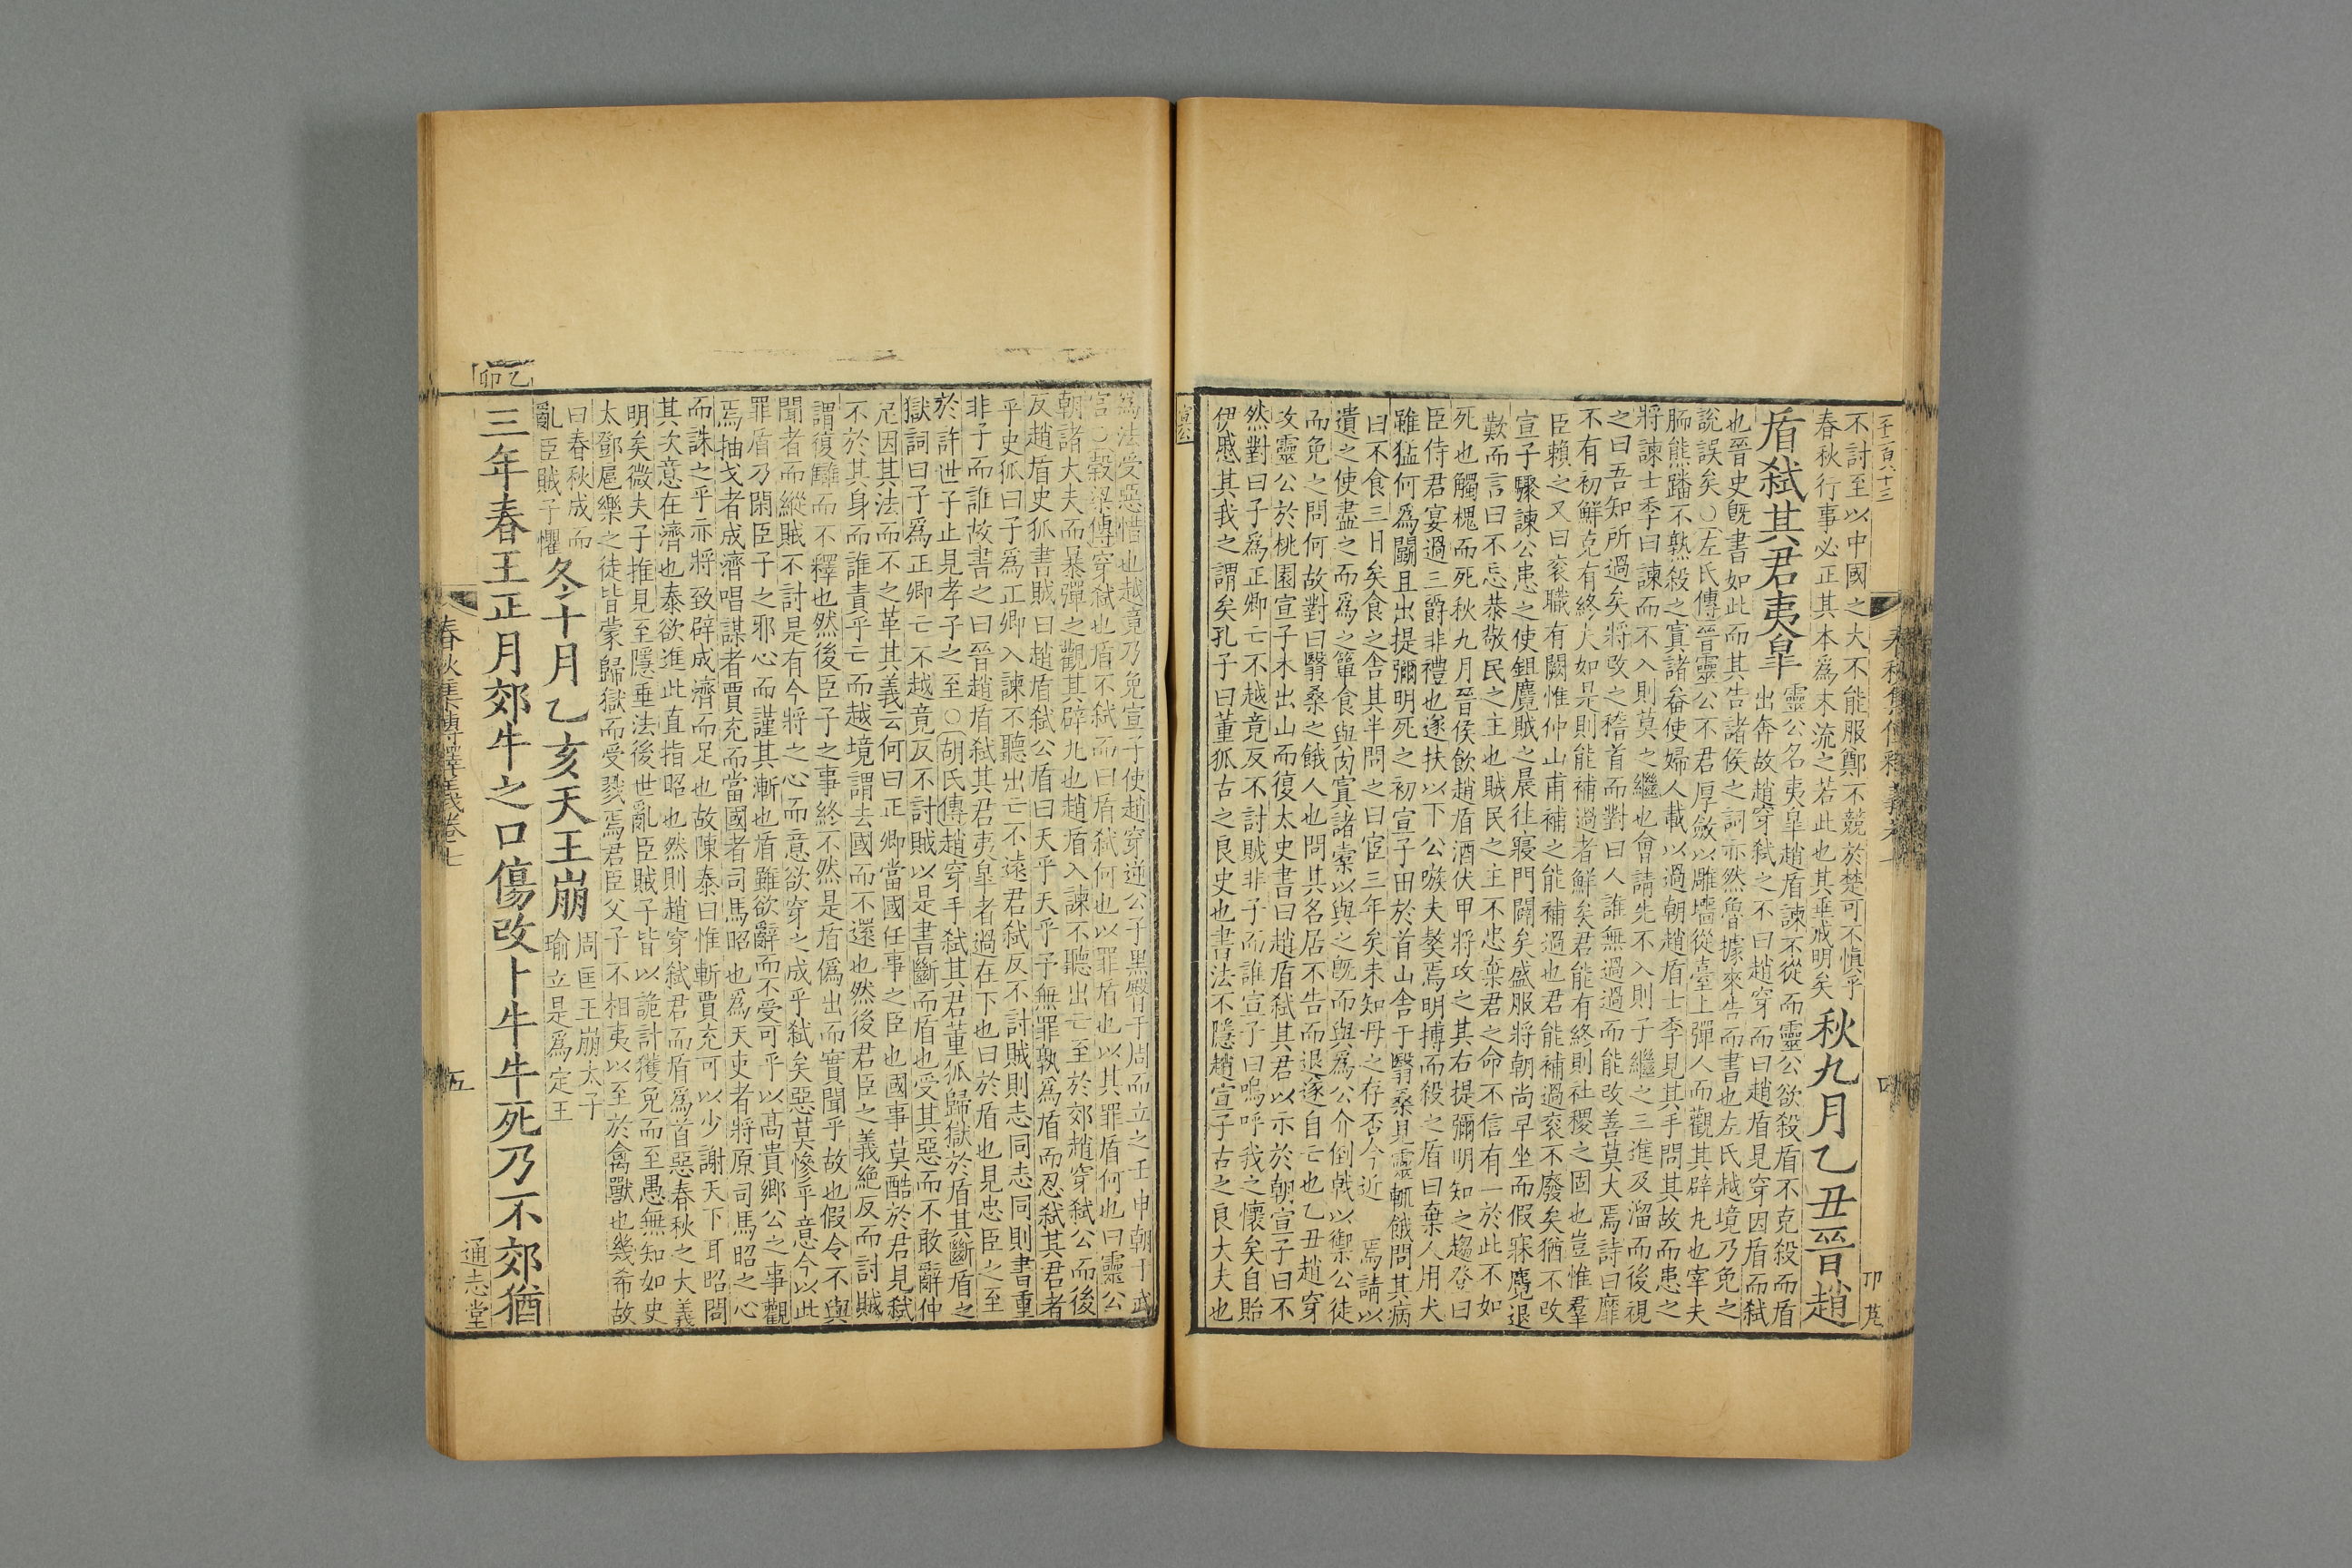 不討至以中國之大不能服鄭不競於楚可不愼乎
春秋行事必正其本爲末流之若此也其垂戒明矣
秋九月乙丑晉趙
盾弑其君夷皐
靈公名夷皐趙盾諫不從而靈公欲殺盾不克殺而盾
出奔故趙穿弑之不曰趙穿而曰趙盾見穿因盾而弑
也晉史旣書如此而其告諸侯之詞亦然魯據來告而書也左氏越境乃免之
說誤矣○左氏傳晉靈公不君厚斂以雕墻從臺上彈人而觀其辟丸也宰夫
胹熊蹯不熟殺之寘諸畚使婦人載以過朝趙盾士季見其手問其故而患之
將諫士季曰諫而不入則莫之繼也會請先不入則子繼之三進及溜而後視
之曰吾知所過矣將改之稽首而對曰人誰無過過而能改善莫大焉詩曰靡
不有初鮮克有終夫如是則能補過者鮮矣君能有終則社稷之固也豈惟羣
臣賴之又曰衮職有闕惟仲山甫補之能補過也君能補過衮不廢矣猶不改
宣子驟諫公患之使鉏麑賊之晨往寢門闢矣盛服將朝尚早坐而假寐麑退
歎而言曰不忘恭敬民之主也賊民之主不忠棄君之命不信有一於此不如
死也觸槐而死秋九月晉侯飲趙盾酒伏甲將攻之其右提彌明知之趨登曰
臣侍君宴過三爵非禮也遂扶以下公嗾夫獒焉明搏而殺之盾曰棄人用犬
雖猛何爲鬬且出提彌明死之初宣子田於首山舍于翳桑見靈輒餓問其病
曰不食三日矣食之舍其半問之曰宦三年矣未知母之存否今近焉請以
遺之使盡之而爲之簞食與肉寘諸槖以與之旣而與爲公介倒戟以禦公徒
而免之問何故對曰翳桑之餓人也問其名居不告而退遂自亡也乙丑趙穿
攻靈公於桃園宣子未出山而復太史書曰趙盾弑其君以示於朝宣子曰不
然對曰子爲正卿亡不越竟反不討賊非子而誰宣子曰嗚呼我之懷矣自貽
伊慼其我之謂矣孔子曰董狐古之良史也書法不隱趙宣子古之良大夫也
爲法受惡惜也越竟乃免宣子使趙穿逆公子黑臀于周而立之壬申朝于武
宮○穀梁傳穿弑也盾不弑而曰盾弑何也以罪盾也以其罪盾何也曰靈公
朝諸大夫而暴彈之觀其辟丸也趙盾入諫不聽出亡至於郊趙穿弑公而後
反趙盾史狐書賊曰趙盾弑公盾曰天乎天乎予無罪孰爲盾而忍弑其君者
乎史狐曰子爲正卿入諫不聽出亡不遠君弑反不討賊則志同志同則書重
非子而誰故書之曰晉趙盾弑其君夷皐者過在下也曰於盾也見忠臣之至
於許世子止見孝子之至○胡氏傳趙穿手弑其君董狐歸獄於盾其斷盾之
獄詞曰子爲正卿亡不越竟反不討賊以是書斷而盾也受其惡而不敢辭仲
尼因其法而不之革其義云何曰正卿當國任事之臣也國事莫酷於君見弑
不於其身而誰責乎亡而越境謂去國而不還也然後君臣之義絶反而討賊
謂復讎而不釋也然後臣子之事終不然是盾僞出而實聞乎故也假令不與
聞者而縱賊不討是有今將之心而意欲穿之成乎弑矣惡莫慘乎意今以此
罪盾乃閑臣子之邪心而謹其漸也盾雖欲辭而不受可乎以高貴鄉公之事觀
焉抽戈者成濟唱謀者賈充而當國者司馬昭也爲天吏者將原司馬昭之心
而誅之乎亦將致辟成濟而足也故陳泰曰惟斬賈充可以少謝天下耳昭問
其次意在濟也泰欲進此直指昭也然則趙穿弑君而盾爲首惡春秋之大義
明矣微夫子推見至隱垂法後世亂臣賊子皆以詭計獲免而至愚無知如史
太鄧扈樂之徒皆蒙歸獄而受戮焉君臣父子不相夷以至於禽獸也幾希故
曰春秋成而
亂臣賊子懼
冬十月乙亥天王崩
周匡王崩太子
瑜立是爲定王
乙卯
三年春王正月郊牛之口傷改卜牛牛死乃不郊猶
春秋集傳釋義卷七
五
通志堂